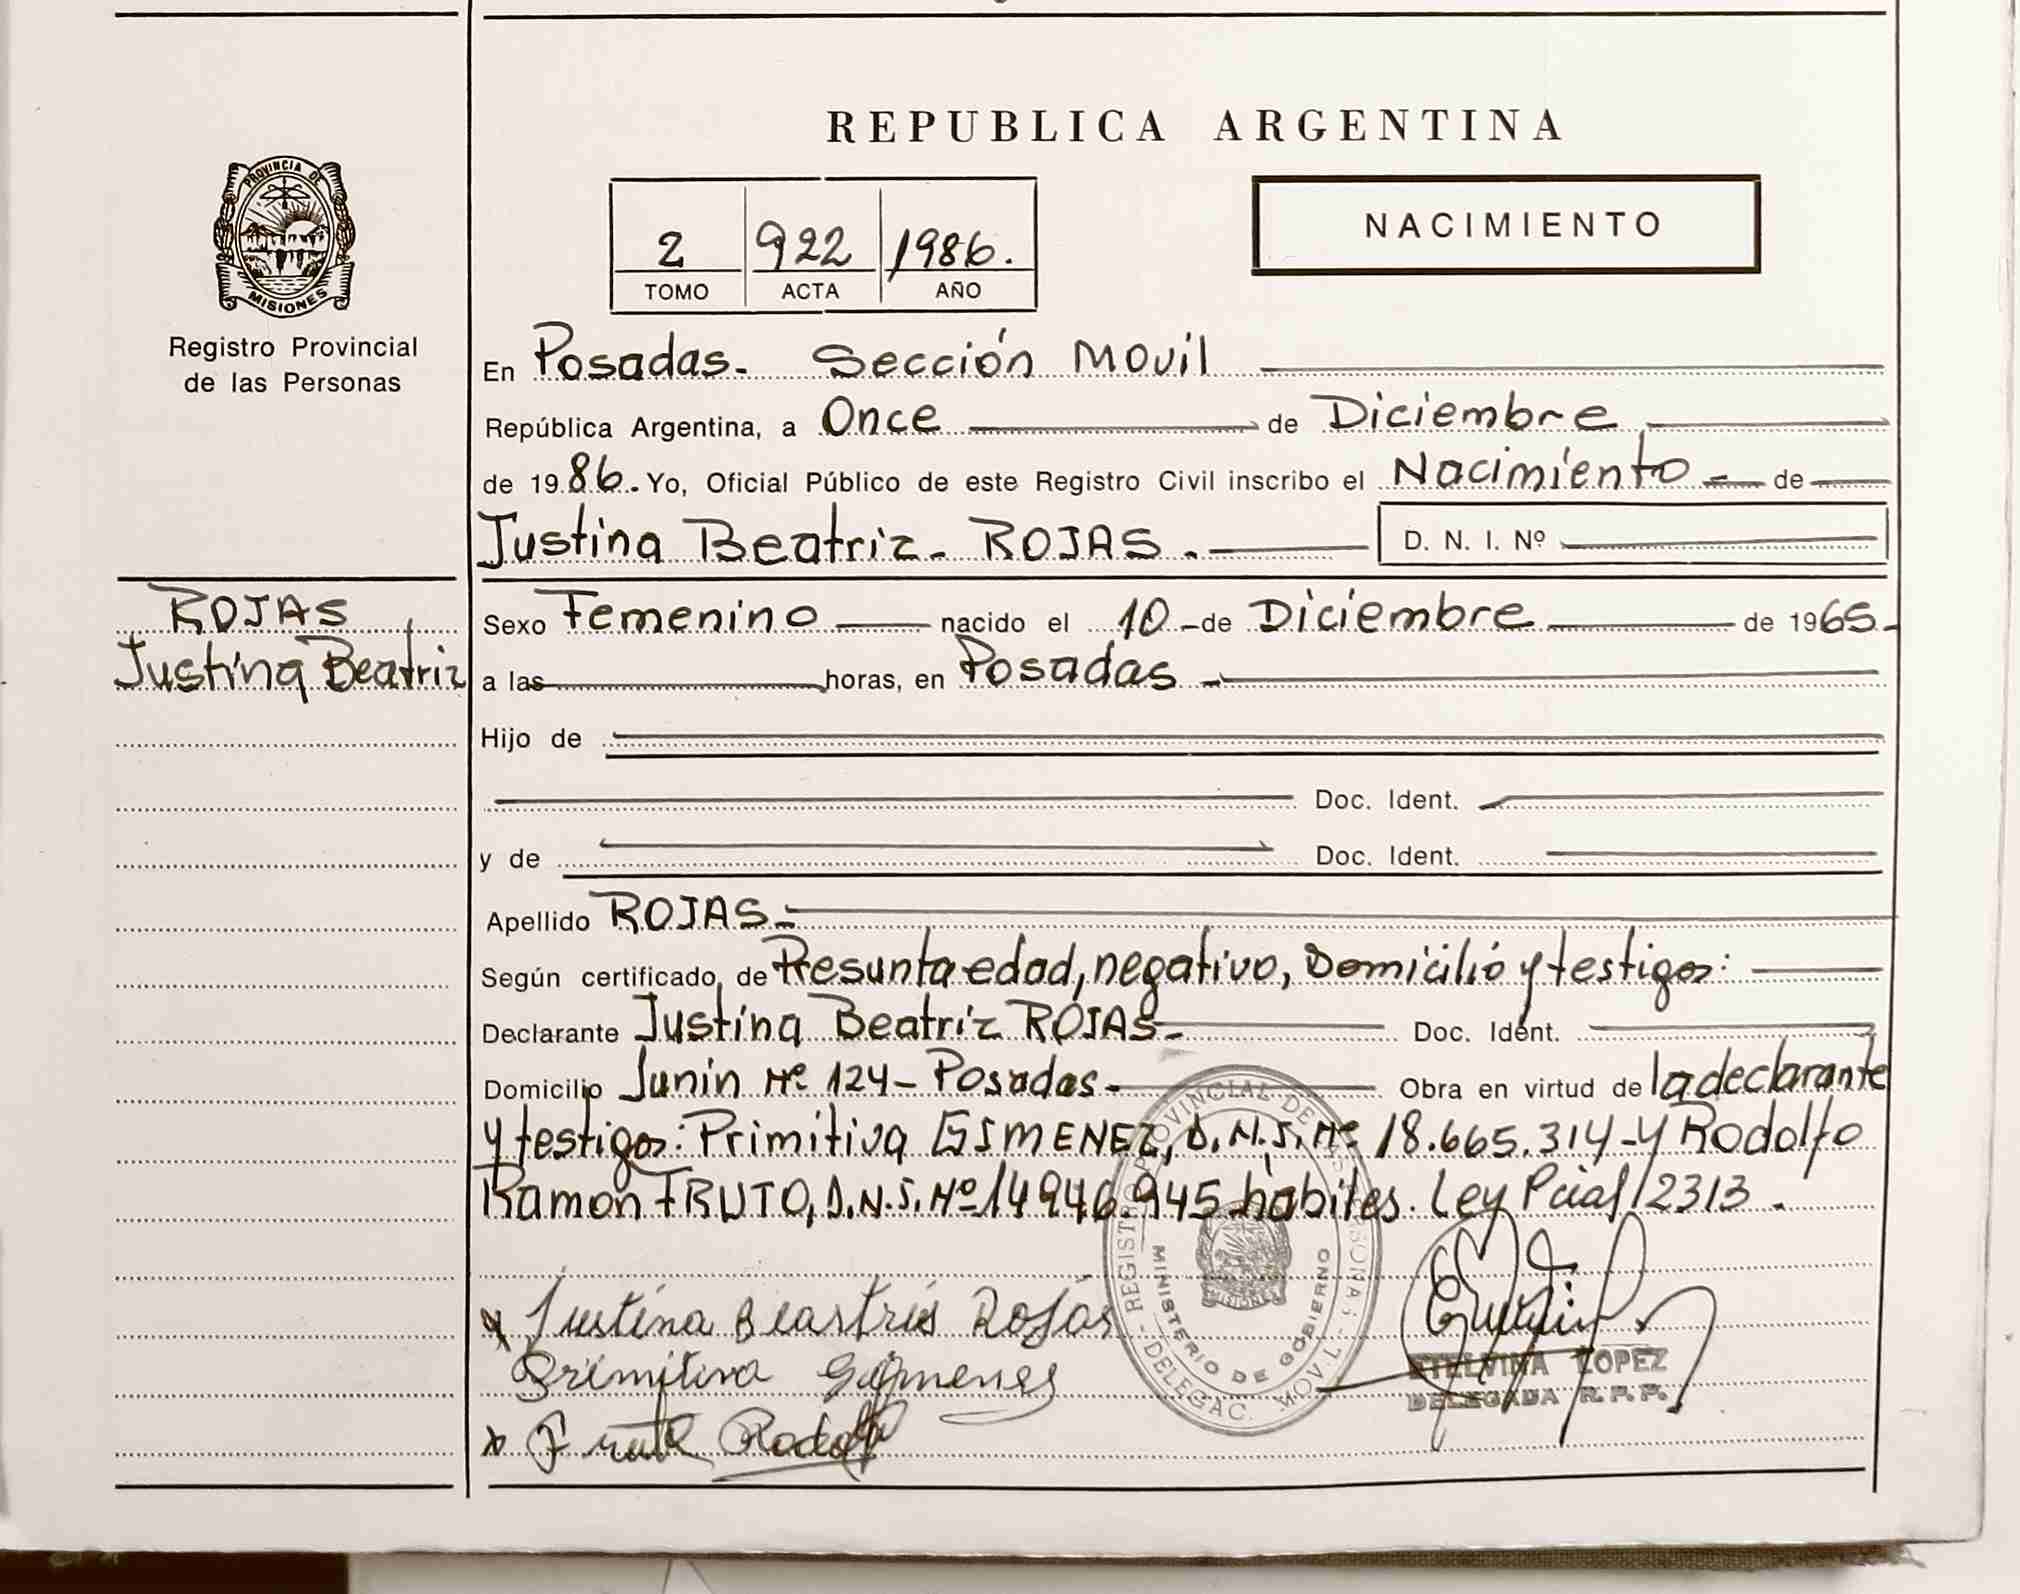 REPUBLICA ARGENTINA
PROVINCIA DE MISIONES
Registro Provincial
de las Personas
2 922 1986.
TOMO ACTA AÑO
NACIMIENTO
En Posadas. Sección Movil
República Argentina, a Once de Diciembre
de 1986. Yo, Oficial Público de este Registro Civil inscribo el Nacimiento de
Justina Beatriz ROJAS. D. N. I. Nº
ROJAS
Justina Beatriz
Sexo Femenino nacido el 10 de Diciembre de 1965
a las horas, en Posadas
Hijo de
Doc. Ident.
y de Doc. Ident.
Apellido ROJAS
Según certificado de Presunta edad, negativo, Domicilio y testigos:
Declarante Justina Beatriz ROJAS Doc. Ident.
Domicilio Junin Nº 124 - Posadas Obra en virtud de la declarante
y testigos: Primitiva GIMENEZ, D.N.I. Nº 18.665.314 - y Rodolfo
Ramon FRUTO, D.N.I. Nº 14946.945 habiles. Ley Pcial 2313.
Justina Beartris Rojas
Primitiva
Rodolfo
REGISTRO PROVINCIAL DE LAS PERSONAS - DELEGAC. MOVIL -
MINISTERIO DE GOBIERNO
MISIONES
ETELVINA LOPEZ
DELEGADA R. P. P.